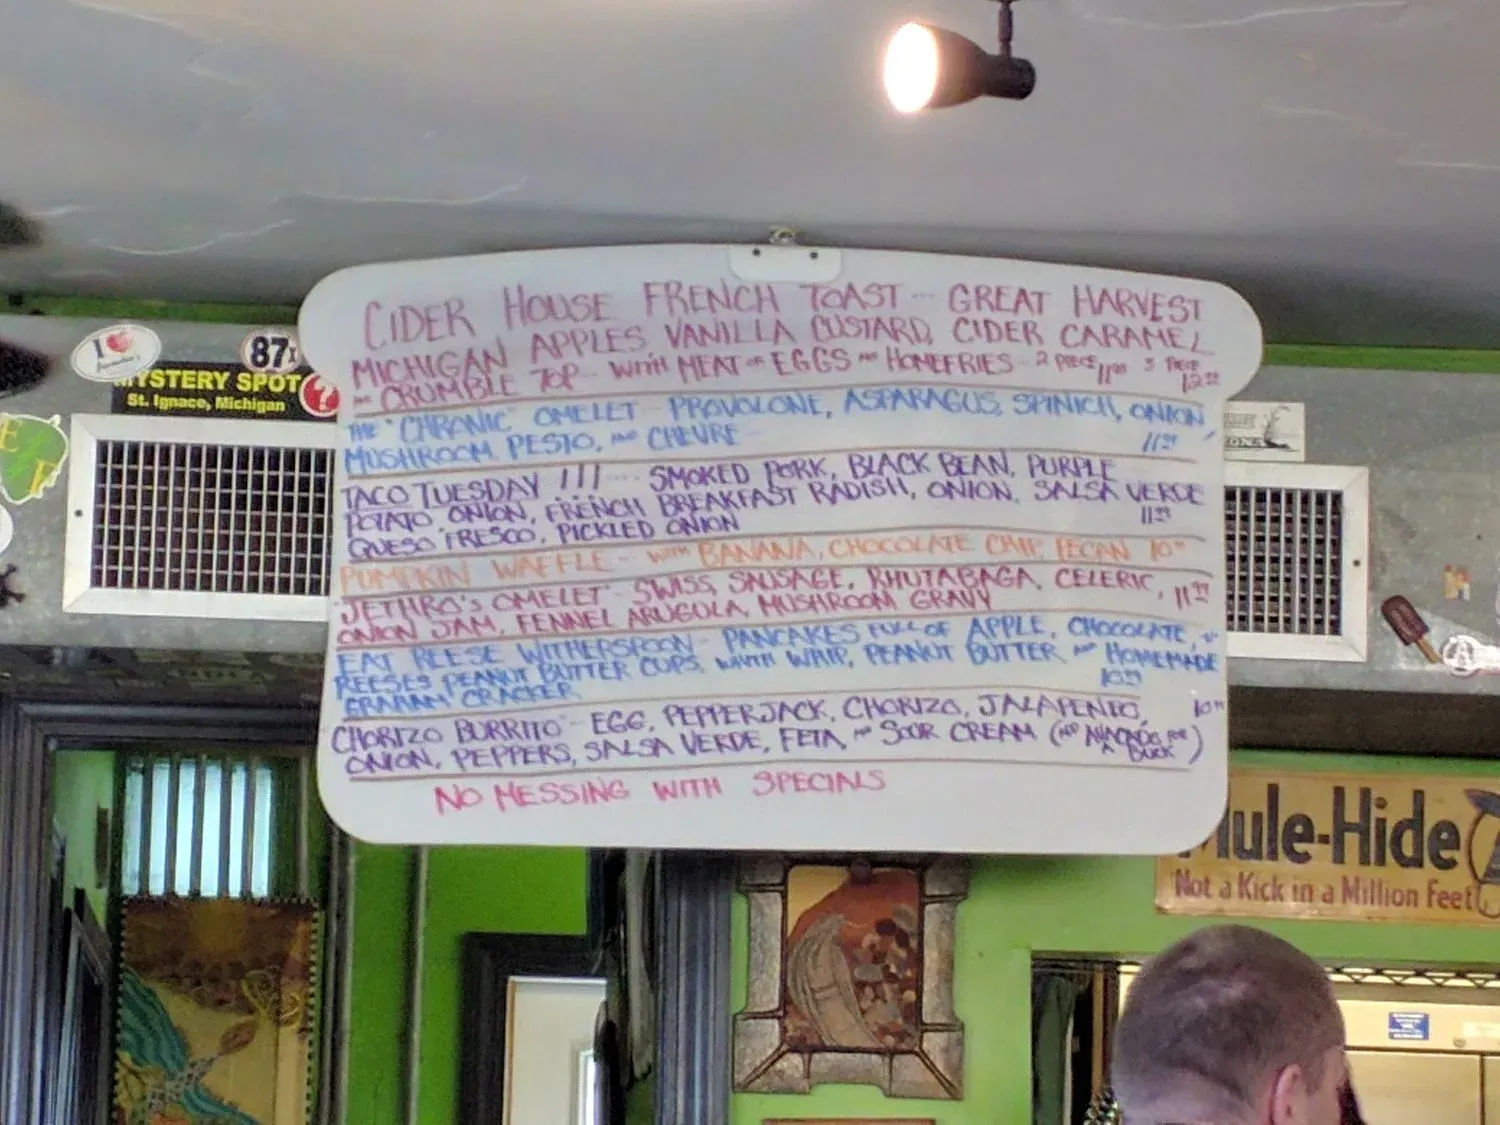 CIDER HOUSE FRENCH TOAST ... GREAT HARVEST
MICHIGAN APPLES VANILLA CUSTARD, CIDER CARAMEL
AND CRUMBLE TOP - WITH MEAT OR EGGS AND HOMEFRIES - 2 PIECE 11 3 PIECE 12
THE "CHRONIC" OMELET - PROVOLONE, ASPARAGUS, SPINICH, ONION,
MUSHROOM PESTO, AND CHEVRE - 11
TACO TUESDAY !!! ... SMOKED PORK, BLACK BEAN, PURPLE
POTATO ONION, FRENCH BREAKFAST RADISH, ONION, SALSA VERDE
QUESO FRESCO, PICKLED ONION 11
PUMPKIN WAFFLE - WITH BANANA, CHOCOLATE CHIP, PECAN 10
"JETHRO'S OMELET" - SWISS, SAUSAGE, RHUTABAGA, CELERIC,
ONION JAM, FENNEL ARUGULA, MUSHROOM GRAVY 11
EAT REESE WITHERSPOON - PANCAKES FULL OF APPLE, CHOCOLATE,
REESES PEANUT BUTTER CUPS, WITH WHIP, PEANUT BUTTER AND HOMEMADE
GRAHAM CRACKER 10
CHORIZO BURRITO - EGG, PEPPERJACK, CHORIZO, JALAPENTO, 10
ONION, PEPPERS, SALSA VERDE, FETA, AND SOUR CREAM (ADD FOR A BUCK)
NO MESSING WITH SPECIALS
I
87
MYSTERY SPOT
St. Ignace, Michigan
?
E
F
Mule-Hide
Not a Kick in a Million Feet